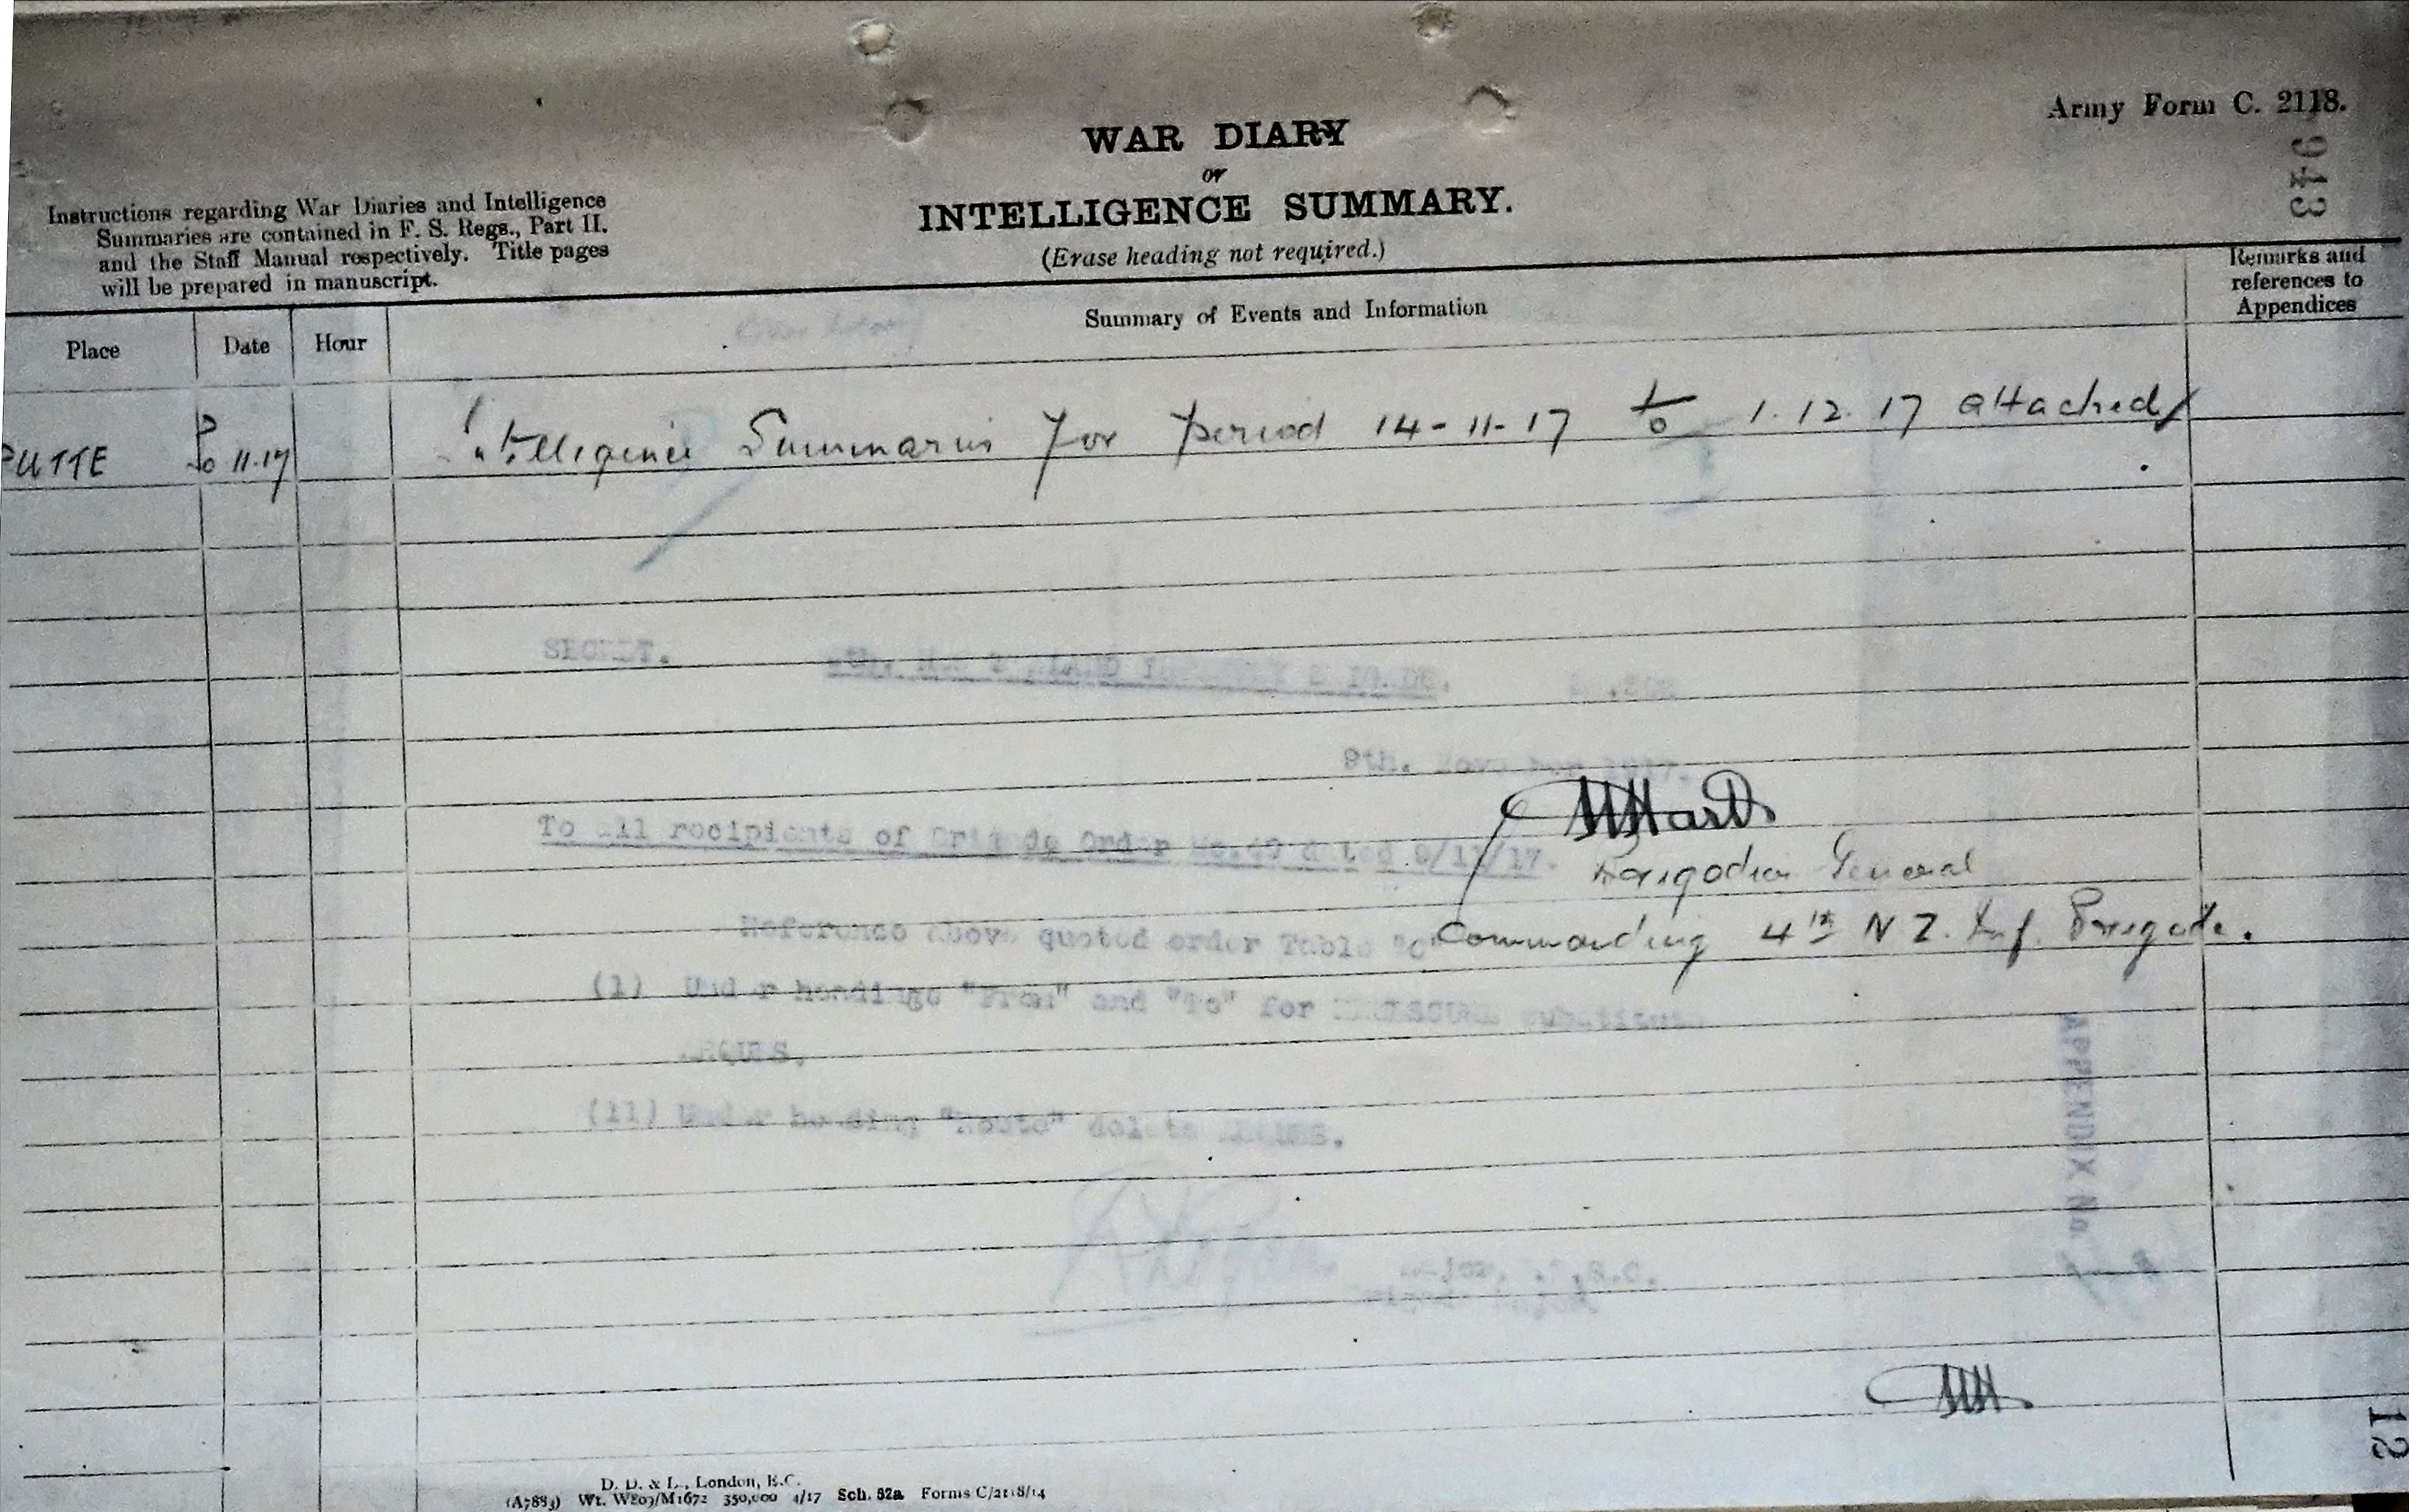 Army Form C. 2118.
943
WAR DIARY
or
INTELLIGENCE SUMMARY.
(Erase heading not required.)
Instructions regarding War Diaries and Intelligence
Summaries are contained in F. S. Regs., Part II.
and the Staff Manual respectively. Title pages
will be prepared in manuscript.
Place
Date
Hour
Summary of Events and Information
Remarks and
references to
Appendices
PUTTE 11.17 Intelligence Summaries for period 14-11-17 to 1.12.17 attached
SECRET.
9th.
Hart
To all recipients of Brigade Order No.40 dated 9/11/17.
Brigadier General
Commanding 4th N Z. Inf. Brigade.
Reference above quoted order Table "C"
(1) Under headings "From" and "To" for substitute
(11) Under heading "Route" delete
APPENDIX No
12
D. D. & L., London, E.C.
(A7883) Wt. W809/M1672 350,000 4/17 Sch. 52a Forms C/2118/14